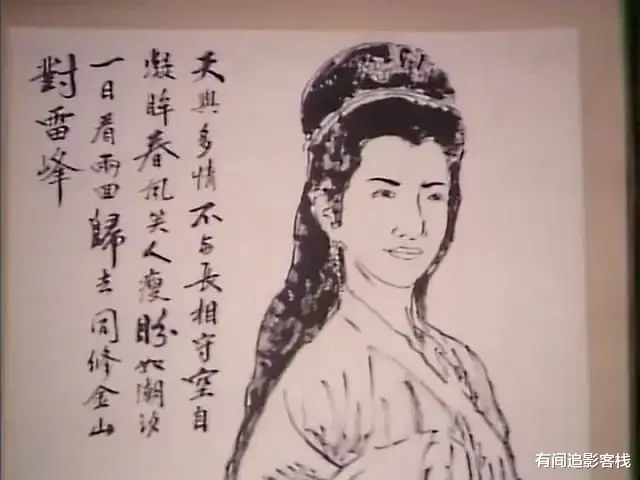 天與多情不与長相守空自
凝眸春风笑人瘦盼如潮汐
一日看兩回歸去同修金山
對雷峰
有间追影客栈